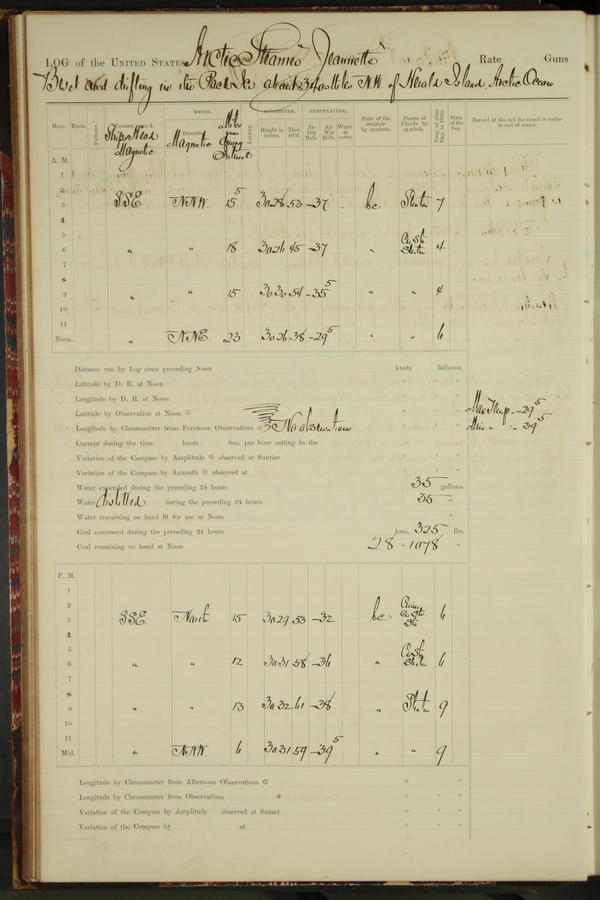 LOG of the UNITED STATES Arctic Steamer "Jeannette" Rate Guns
Beset and drifting in the Pack Ice about 340 Miles N.W. of Herald Island, Arctic Ocean
WINDS. BAROMETER. TEMPERATURE.
Hour. Knots. Fathoms. Ship's Head Magnetic Direction Magnetic Miles per hour during interval Leeway. Height in inches. Ther. att'd. Air Dry Bulb. Air Wet Bulb. Water at surface. State of the weather by symbols. Forms of Clouds by symbols. Prop. of clear sky, in 10ths. State of the Sea. Record of the sail the vessel is under at end of watch.
A. M.
1
2
3 SSE NNW 15 5 30.28 53 -37 bc Stratus 7
4
5
6 " " 18 30.26 45 -37 " Ci. St. Stratus 4
7
8
9 " " 15 30.30 54 -35 5 " " 4
10
11
Noon. " NNE 23 30.26 38 -29 5 " " 6
Distance run by Log since preceding Noon knots fathoms.
Latitude by D. R. at Noon
Longitude by D. R. at Noon
Latitude by Observation at Noon Max Temp. -29 5
Longitude by Chronometer from Forenoon Observations No observations Min " :- 39 5
Current during the time knots fms. per hour setting to the
Variation of the Compass by Amplitude observed at Sunrise
Variation of the Compass by Azimuth observed at
Water expended during the preceding 24 hours 35 gallons.
Water distilled during the preceding 24 hours 35 "
Water remaining on hand fit for use at Noon "
Coal consumed during the preceding 24 hours tons. 325 lbs.
Coal remaining on hand at Noon 28 " 1078 "
P. M.
1
2
3 SSE North 15 30.29 53 -32 bc Ci. St. 6
4
5
6 " " 12 30.31 58 -36 " Ci. St. Stratus 6
7
8
9 " " 13 30.32 61 -38 " Stratus 9
10
11
Mid. " NNW 6 30.31 59 -39 5 " " 9
Longitude by Chronometer from Afternoon Observations
Longitude by Chronometer from Observations
Variation of the Compass by Amplitude observed at Sunset
Variation of the Compass by at